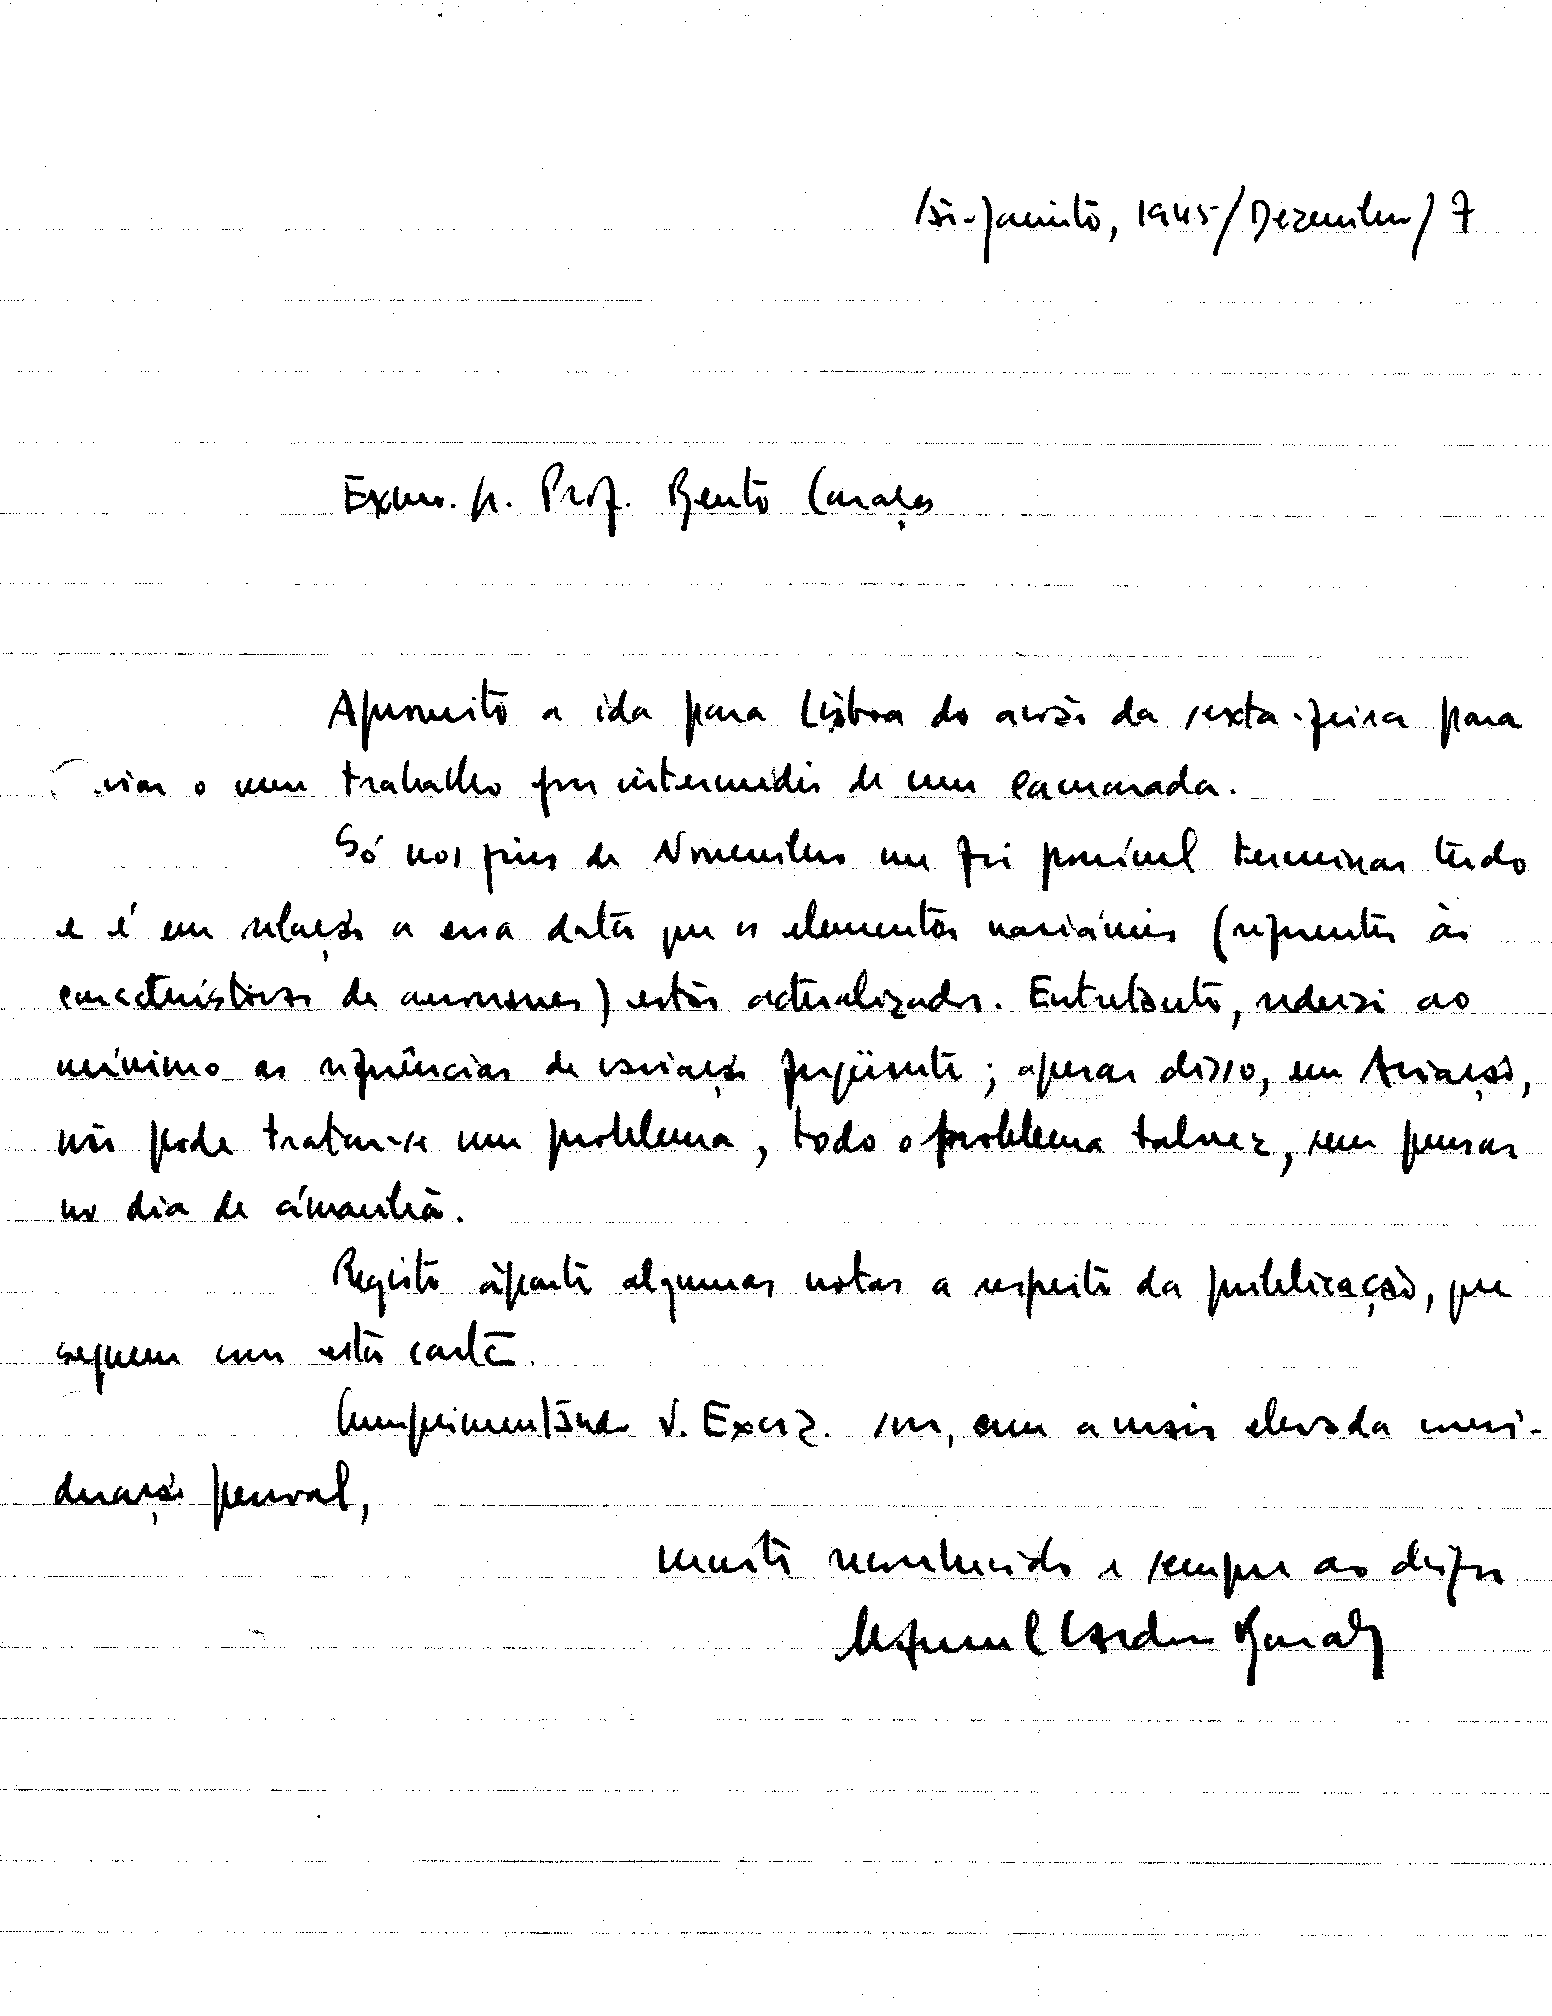 São-Jacinto, 1945/Dezembro/7
Exmo. Sr. Prof. Bento Caraça
Aproveito a ida para Lisboa do avião da sexta-feira para
enviar o meu trabalho por intermédio de um camarada.
Só nos fins de Novembro me foi possível terminar tudo
e é em relação a essa data que os elementos variáveis (referentes às
características de aeronaves) estão actualizados. Entretanto, reduzi ao
mínimo as referências de variação freqüente; apesar disso, em Aviação,
não pode tratar-se um problema, todo o problema talvez, sem pensar
no dia de àmanhã.
Registo àparte algumas notas a respeito da publicação, que
seguem com esta carta.
Cumprimentando V. Excia. sou, com a mais elevada consi-
deração pessoal,
muito reconhecido e sempre ao dispor